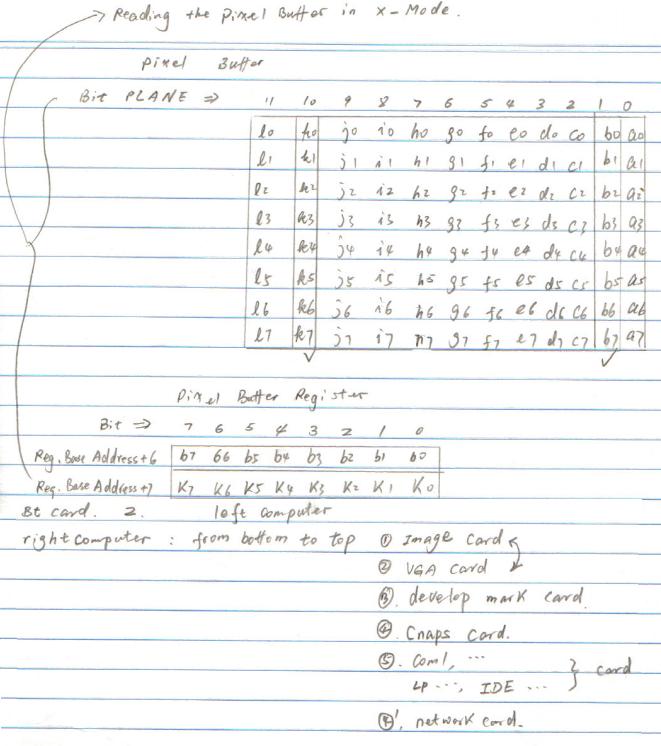 Reading the Pixel Buffer in X-Mode.
Pixel Buffer
Bit PLANE ⇒ 11 10 9 8 7 6 5 4 3 2 1 0
l0 k0 j0 i0 h0 g0 f0 e0 d0 c0 b0 a0
l1 k1 j1 i1 h1 g1 f1 e1 d1 c1 b1 a1
l2 k2 j2 i2 h2 g2 f2 e2 d2 c2 b2 a2
l3 k3 j3 i3 h3 g3 f3 e3 d3 c3 b3 a3
l4 k4 j4 i4 h4 g4 f4 e4 d4 c4 b4 a4
l5 k5 j5 i5 h5 g5 f5 e5 d5 c5 b5 a5
l6 k6 j6 i6 h6 g6 f6 e6 d6 c6 b6 a6
l7 k7 j7 i7 h7 g7 f7 e7 d7 c7 b7 a7
Pixel Buffer Register
Bit ⇒ 7 6 5 4 3 2 1 0
Reg. Base Address+6 b7 b6 b5 b4 b3 b2 b1 b0
Reg. Base Address+7 K7 K6 K5 K4 K3 K2 K1 K0
Bt card. 2. left computer
right computer : from bottom to top ① Image card
② VGA card
③. develop mark card.
④. Cnaps card.
⑤. Com1, ...
LP ..., IDE ... } card
④', network card.